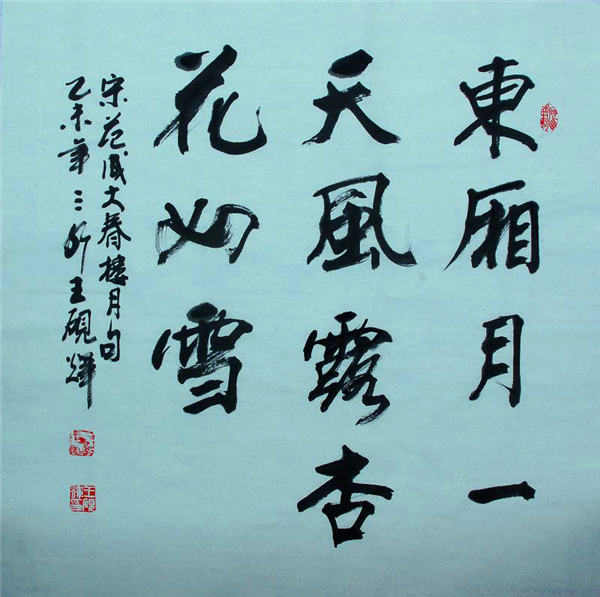 東厢月一
天風露杏
花如雪
宋范成大秦樓月句
乙未年三 王硯輝